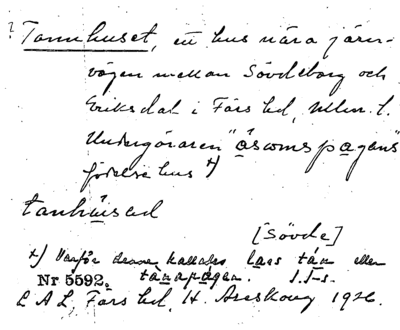 ? Tannhuset, ett hus nära järn-
vägen mellan Sövdeborg och
Eriksdal i Färs hd, Mlm. l.
Undergöraren "åsomspagens"
födelsehus x)
tanhúsəd
[Sövde]
x) Varför denne kallades lars tán eller
Nr 5592. tánapågen.
L A L, Färs hd, H. Areskoug 1926.